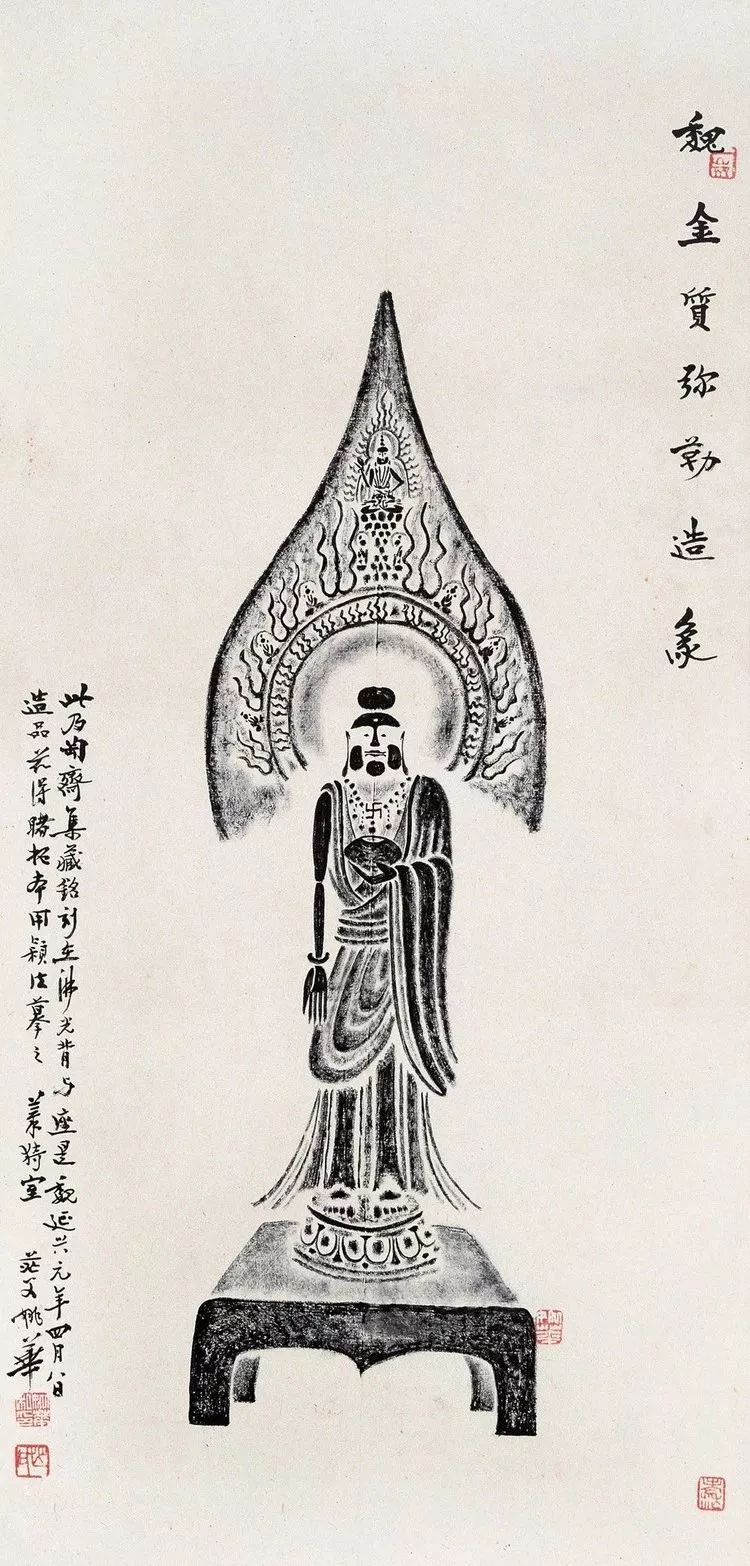 魏金質弥勒造象
此乃匋齋集藏銘刻在佛光背与座是魏延興元年四月八日
造品茫得睹拓本用穎法摹之 菉猗室 茫父姚華